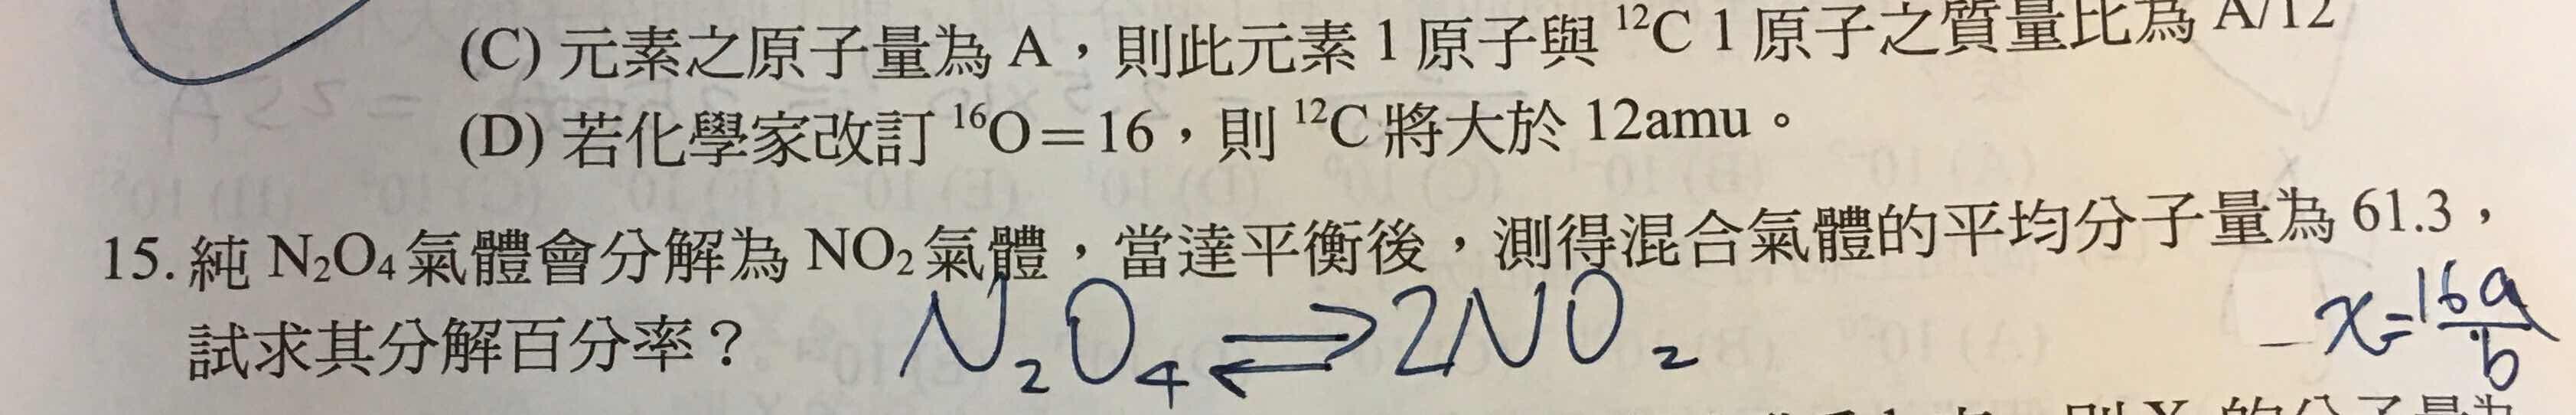 (C) 元素之原子量為 A，則此元素 1 原子與 ¹²C 1 原子之質量比為 A/12
(D) 若化學家改訂 ¹⁶O＝16，則 ¹²C 將大於 12amu。
15. 純 N₂O₄ 氣體會分解為 NO₂ 氣體，當達平衡後，測得混合氣體的平均分子量為 61.3，
試求其分解百分率？
N₂O₄ ⇌ 2NO₂
x=16a/b